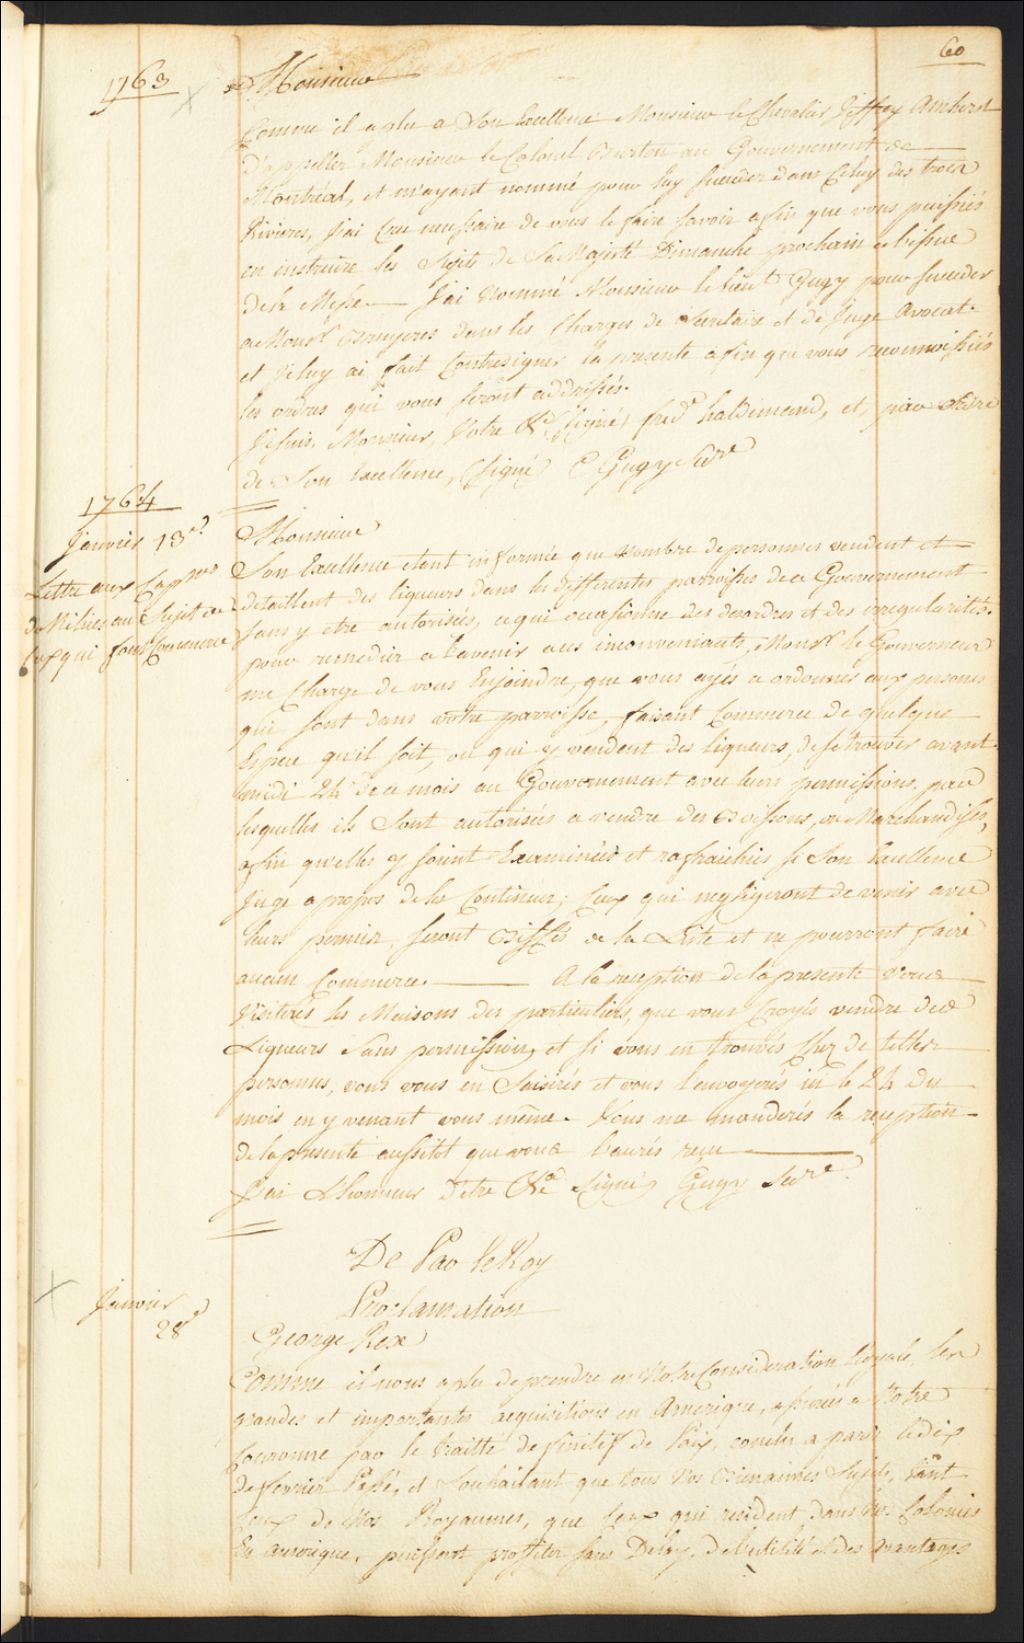 60
1763
Monsieur
Comme il a plu a Son Excellence Monsieur le Chevalier Jeffrey Amherst
d'appeller Monsieur le Colonel Burton au Gouvernement de
Montréal, et m'ayant nommé pour luy succeder dans Celuy des trois
Rivieres, J'ai Cru necessaire de vous le faire savoir afin que vous puissiés
en instruire les Sujets de Sa Majesté Dimanche prochain a l'issue
de la Messe. J'ai Nommé Monsieur le Lieut Gugy pour succeder
a Monsr Bruyeres dans les Charges de Secretaire et de Juge Avocat.
et Je luy ai fait Contresigner la presente afin que vous reconnoissiés
les ordres qui vous seront addressés.
Je suis, Monsieur, Votre &c (signé) fred haldimand, et, par Ordre
de Son Excellence, (Signé) C Gugy Secre
1764
Janvier 13e
Lettre aux Cappnes
de Milices au Sujet de
Ceux qui font Commerce
Monsieur
Son Excellence etant informée que nombre de personnes vendent et
detaillent des liqueurs dans les differentes parroisses de ce Gouvernement
sans y etre autorisées, ce qui occasionne des desordres et des irregularités.
pour remedier a l'avenir a ces inconveniants, Monsr le Gouverneur
me Charge de vous Enjoindre, que vous ayés a ordonner aux personnes
qui sont dans votre parroisse, faisant Commerce de quelque
Espece qu'il soit, ou qui y vendent des liqueurs, de se trouver avant
midi 24 de ce mois au Gouvernement avec leurs permissions, par
lesquelles ils Sont autorisées a vendre des Boissons, ou Marchandises,
afin qu'elles y soient Examinées et rafraichies si Son Excellence
Juge a propos de les Continuer; Ceux qui negligeront de venir avec
leurs permis, seront Biffés de la Liste et ne pourront faire
aucun Commerce. A la reception de la presente Vous
Visiterés les Maisons des particuliers, que vous Croyés vendre des
Liqueurs Sans permission, et si vous en trouvés Chez de telles
personnes, vous vous en Saisirés et vous l'envoyerés ici le 24 du
mois en y venant vous même. Vous me manderés la reception
de la presente aussitot que vous l'aurés reçu
J'ai L'honneur d'etre &c Signé Gugy Secre.
De Par le Roy
Proclamation
Janvier
28
George Rex
Comme il nous a plu de prendre en Notre Consideration Royale, les
grandes et importantes acquisitions en Amerique, assurées a Notre
Couronne par le traitté definitif de Paix, conclu a paris le dix
de fevrier Passé, et Souhaitant que tous Nos Bienaimés Sujets, tant
Ceux de Nos Royaumes, que Ceux qui resident dans Nos Colonies
En Amerique, puissent proffiter sans Delay, de l'utilité et des avantages